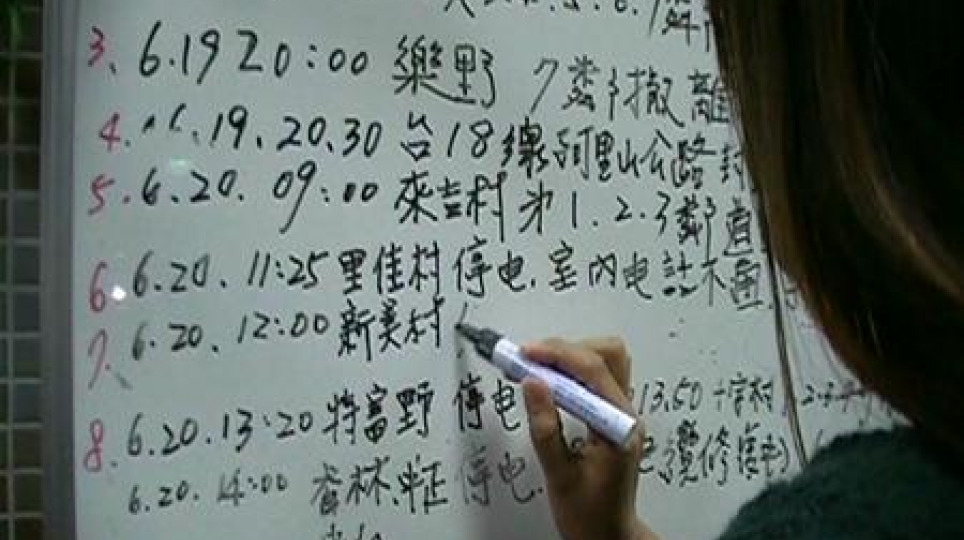 3、6.19 20:00 樂野 7鄰撤離
4. 6.19、20、30 台18線阿里山公路封
5. 6.20. 09:00 來吉村 第1.2.3鄰道
6. 6.20. 11:25 里佳村 停电. 室內电話不通
7. 6.20、12:00 新美村
8. 6.20.13:20 特富野 停电 13.50 十字村
6.20. 14:00 香林.中正 停电. 搶修